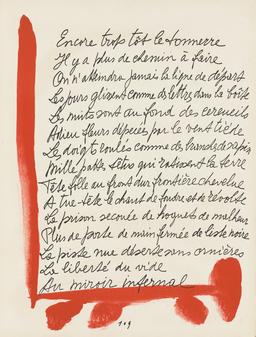 Encore trop tôt le tonnerre
Il y a plus de chemin à faire
On n'atteindra jamais la ligne de départ
Les jours glissent comme des lettres dans la boîte
Les nuits sont au fond des cercueils
Adieu fleurs dépecées par le vent tiède
Les doigts coulés comme des branches de sapin
Mille pattes têtus qui ratissent la terre
Tête folle au front dur frontière chevelue
A tue-tête le chant de foudre et de révolte
La prison secouée de hoquets de malheur
Plus de porte de main fermée de liste noire
La piste nue déserte sans ornières
La liberté du vide
Au miroir infernal
109